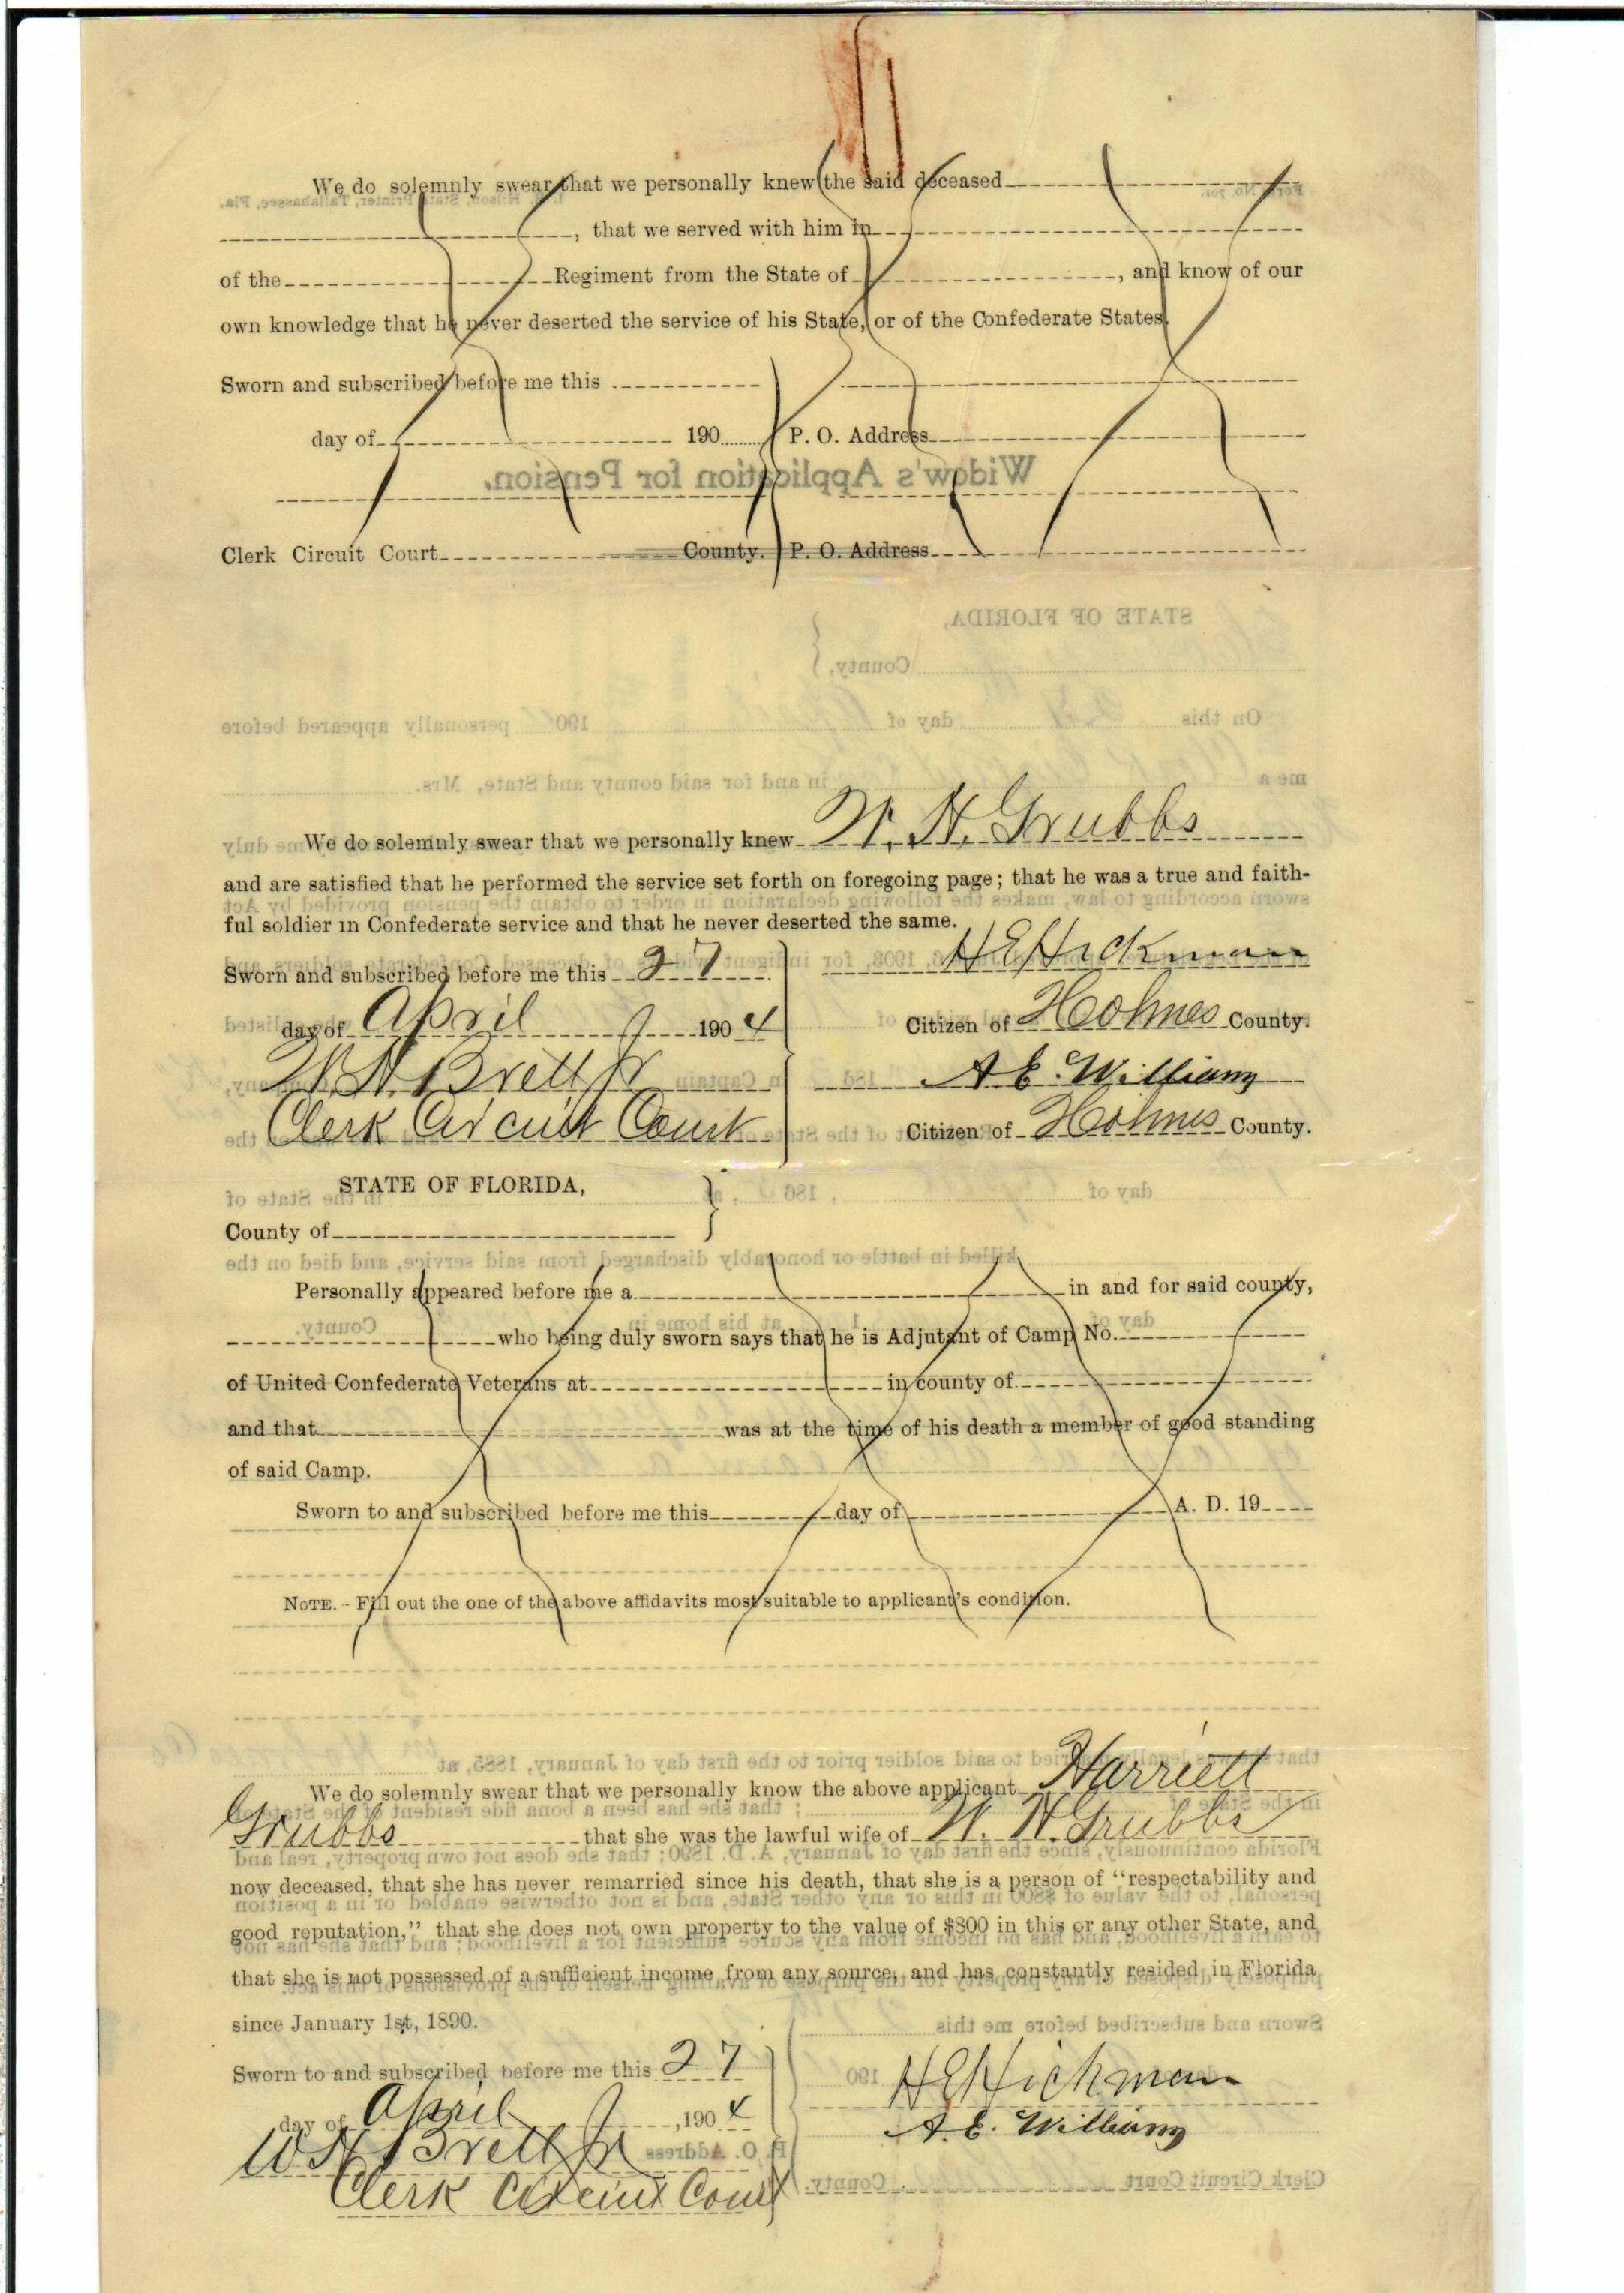 We do solemnly swear that we personally knew the said deceased
, that we served with him in
of the Regiment from the State of , and know of our
own knowledge that he never deserted the service of his State, or of the Confederate States.
Sworn and subscribed before me this
day of 190 P. O. Address
Widow's Application for Pension.
Clerk Circuit Court County. P. O. Address
STATE OF FLORIDA,
County.
On this day of 190 personally appeared before
me a in and for said county and State, Mrs.
We do solemnly swear that we personally knew W. H. Grubbs
and are satisfied that he performed the service set forth on foregoing page; that he was a true and faith-
ful soldier in Confederate service and that he never deserted the same.
Sworn and subscribed before me this 27 H E Hickman
day of April 1904 Citizen of Holmes County.
W. H. Brett Jr A. E. Williams
Clerk Circuit Court Citizen of Holmes County.
STATE OF FLORIDA,
County of
killed in battle or honorably discharged from said service, and died on the
Personally appeared before me a in and for said county,
who being duly sworn says that he is Adjutant of Camp No.
of United Confederate Veterans at in county of
and that was at the time of his death a member of good standing
of said Camp.
Sworn to and subscribed before me this day of A. D. 19
NOTE. - Fill out the one of the above affidavits most suitable to applicant's condition.
We do solemnly swear that we personally know the above applicant Harriett
Grubbs that she was the lawful wife of W. H. Grubbs
now deceased, that she has never remarried since his death, that she is a person of "respectability and
good reputation," that she does not own property to the value of $800 in this or any other State, and
that she is not possessed of a sufficient income from any source, and has constantly resided in Florida
since January 1st, 1890.
Sworn and subscribed before me this
Sworn to and subscribed before me this 27 H E Hickman
day of April ,1904 A. E. Williams
W H Brett Jr P. O. Address
Clerk Circuit Court
Clerk Circuit Court County.